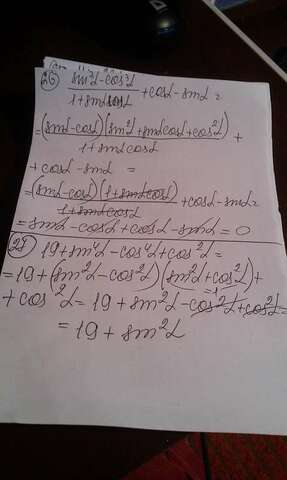 26) (sin³α - cos³α)/(1 + sinα cosα) + cosα - sinα =
= (sinα - cosα)(sin²α + sinα cosα + cos²α)/(1 + sinα cosα) +
+ cosα - sinα =
= (sinα - cosα)(1 + sinα cosα)/(1 + sinα cosα) + cosα - sinα =
= sinα - cosα + cosα - sinα = 0
19 + sin⁴α - cos⁴α + cos²α =
= 19 + (sin²α - cos²α)(sin²α + cos²α) +
=1
+ cos²α = 19 + sin²α - cos²α + cos²α =
= 19 + sin²α